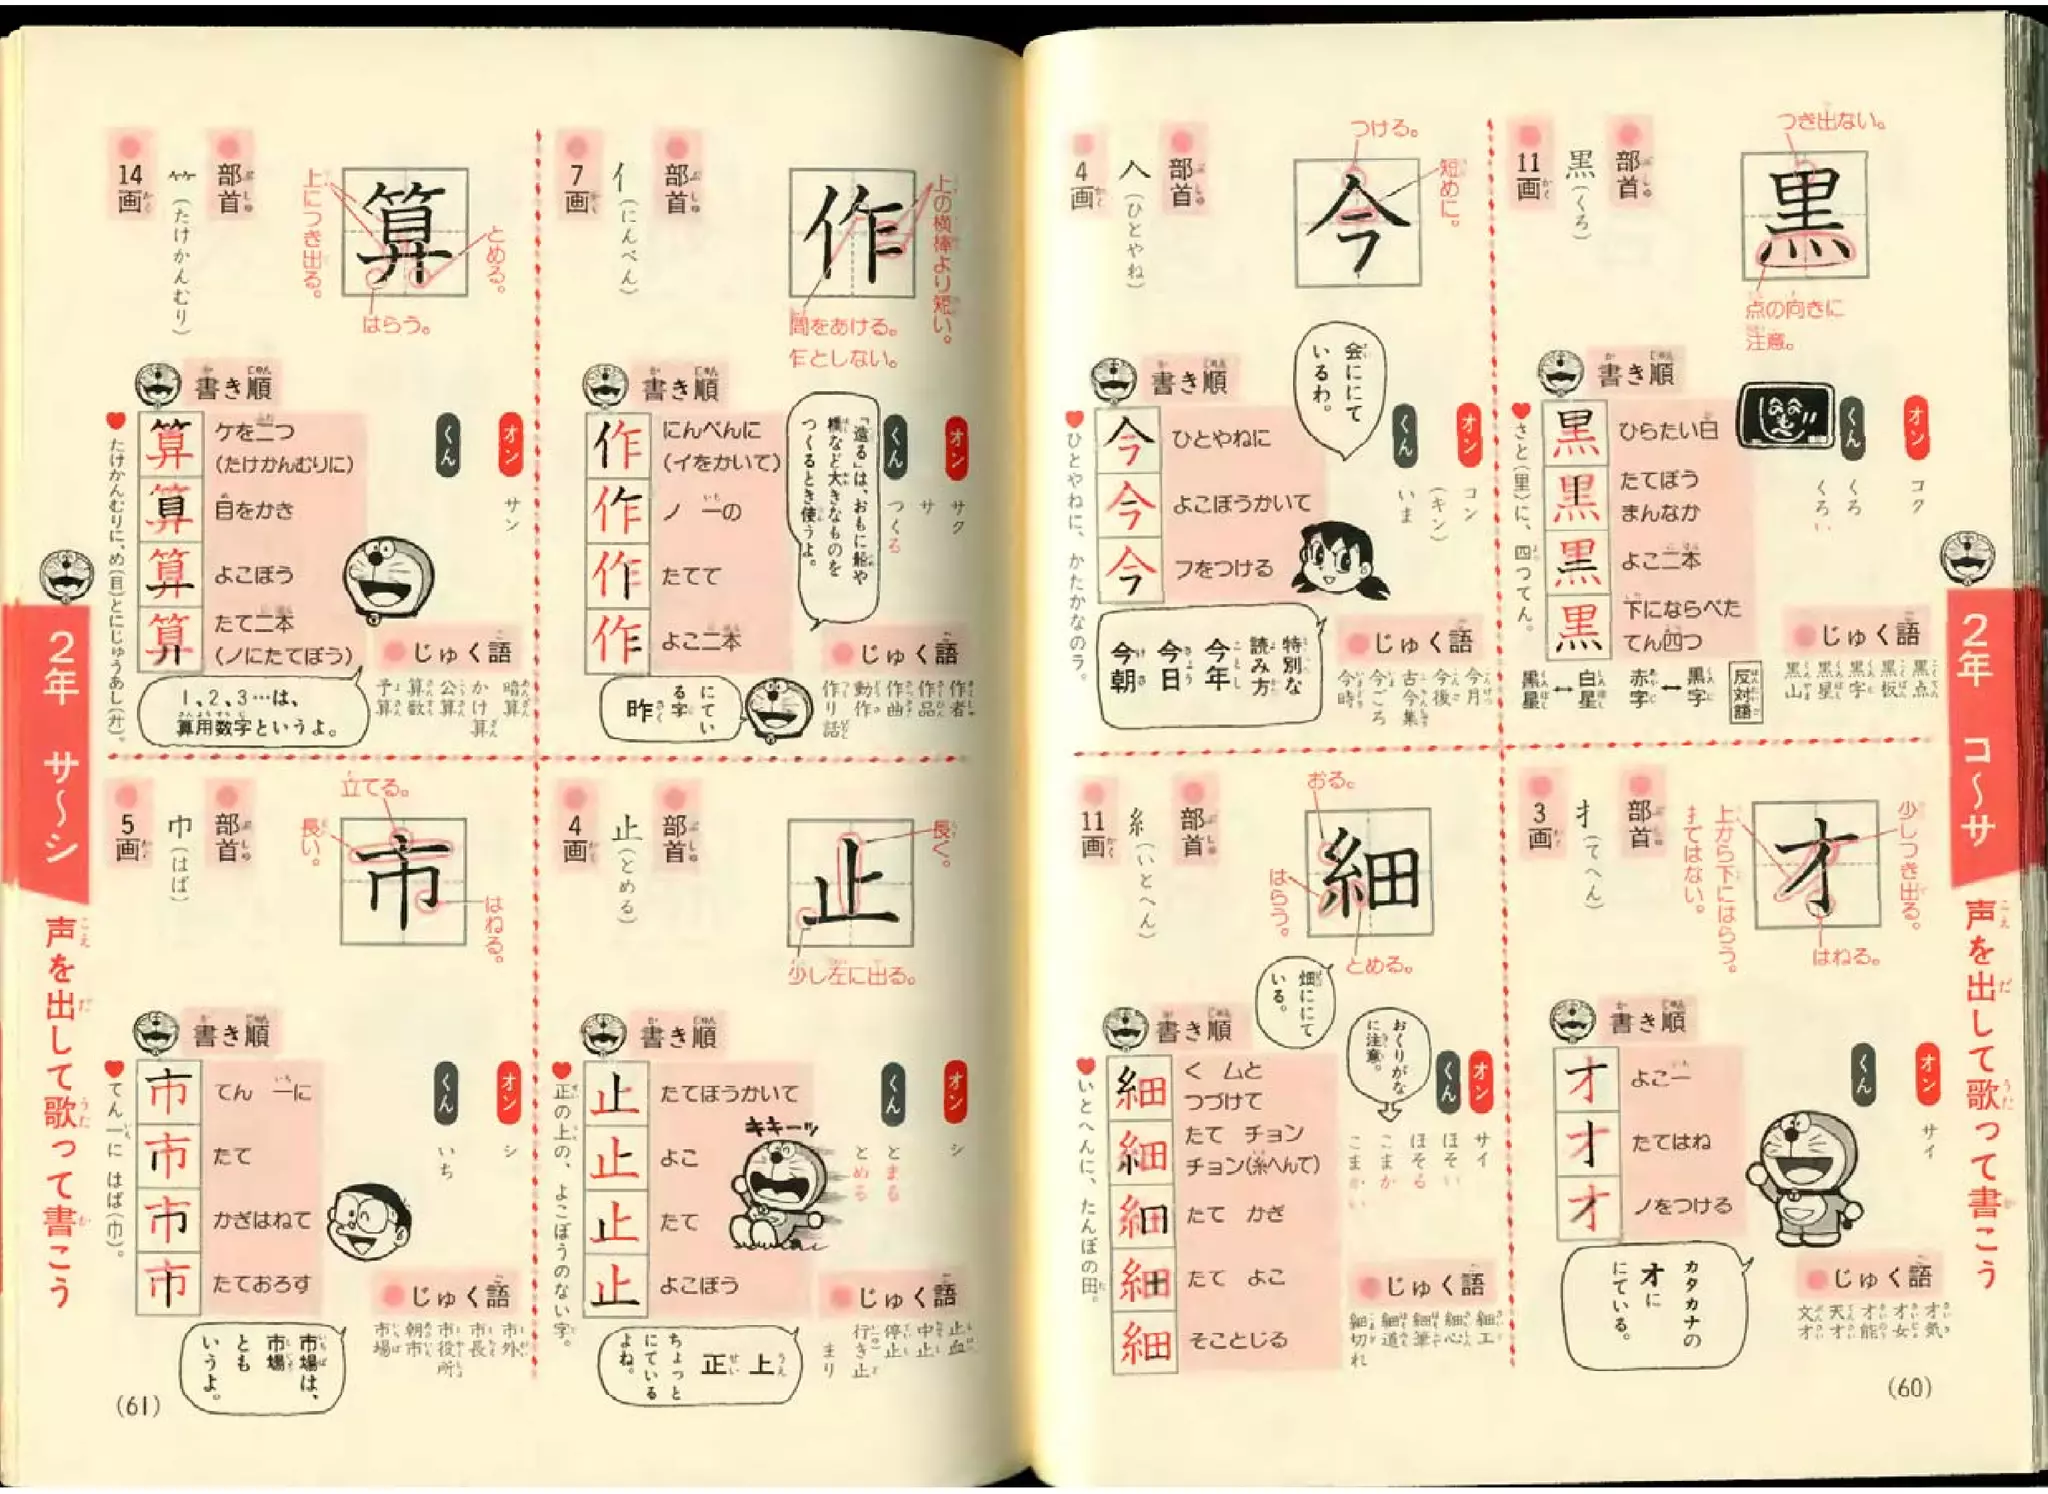 2年 コ〜サ
声を出して歌って書こう
黒
つき出ない。
点の向きに
注意。
部首
黒(くろ)
11画
書き順
ひらたい日
たてぼう
まんなか
よこ二本
下にならべた
てん四つ
さと(里)に、四つてん。
オン
コク
くん
くろ
くろい
じゅく語
黒点
黒板
黒字
黒星
黒山
反対語
黒字↔赤字
白星↔黒星
今
つける。
短めに。
部首
人(ひとやね)
4画
書き順
ひとやねに
よこぼうかいて
フをつける
ひとやねに、かたかなのラ。
会ににて
いるわ。
オン
コン
(キン)
くん
いま
じゅく語
今月
今後
古今集
今ごろ
今時
特別な
読み方
今年
今日
今朝
才
少しつき出る。
上から下にはらう。
扌ではない。
はねる。
部首
扌(てへん)
3画
書き順
よこ一
たてはね
ノをつける
オン
サイ
くん
じゅく語
才気
才女
才能
天才
文才
カタカナの
オに
にている。
細
おる。
はらう。
とめる。
部首
糸(いとへん)
11画
書き順
く ムと
つづけて
たて チョン
チョン(糸へんで)
たて かぎ
たて よこ
そことじる
いとへんに、たんぼの田。
畑ににて
いる。
おくりがな
に注意。
オン
サイ
くん
ほそい
ほそる
こまか
こまかい
じゅく語
細工
細心
細筆
細道
細切れ
(60)
作
上の横棒より短い。
間をあける。
乍としない。
部首
亻(にんべん)
7画
書き順
にんべんに
(イをかいて)
ノ 一の
たてて
よこ二本
「造る」は、おもに船や
橋など大きなものを
つくるとき使うよ。
オン
サク
サ
くん
つくる
じゅく語
作者
作品
作曲
動作
作り話
にてい
る字
昨
算
上につき出る。
とめる。
はらう。
部首
⺮(たけかんむり)
14画
書き順
ケを二つ
(たけかんむりに)
目をかき
よこぼう
たて二本
(ノにたてぼう)
たけかんむりに、め(目)とにじゅうあし(廾)。
オン
サン
くん
じゅく語
暗算
かけ算
公算
算数
予算
1、2、3…は、
算用数字というよ。
止
長く。
少し左に出る。
部首
止(とめる)
4画
書き順
たてぼうかいて
よこ
たて
よこぼう
正の上の、よこぼうのない字。
キキーッ
オン
シ
くん
とまる
とめる
じゅく語
止血
中止
停止
行き止まり
上
正
ちょっと
にている
よね。
市
立てる。
長い。
はねる。
部首
巾(はば)
5画
書き順
てん 一に
たて
かぎはねて
たておろす
てん一に はば(巾)。
オン
シ
くん
いち
じゅく語
市外
市長
市役所
朝市
市場
市場は、
市場
とも
いうよ。
(61)
2年 サ〜シ
声を出して歌って書こう